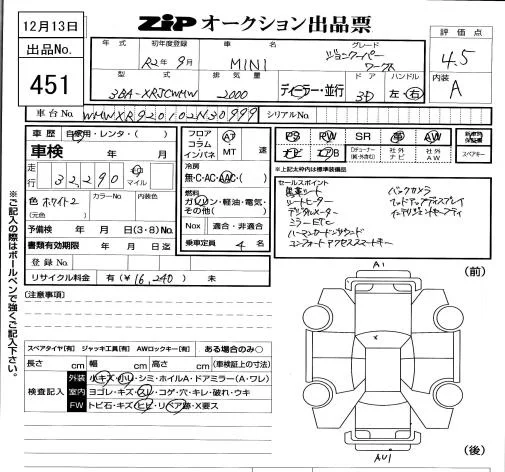 12月13日
出品No.
451
ZIP オークション出品票
年式 初年度登録 車名 グレード
R2年9月 MINI ジョンクーパーワークス
型式 排気量 ドア ハンドル
3BA-XRJCWMW 2000 ディーラー・並行 3D 左・右
評価点
4.5
内装
A
車台No. WMWXR920102N30999 シリアルNo.
車歴 自家用・レンタ・( )
車検 年 月
走行 32,290 km マイル
色 ホワイト2 カラーNo. 内装色
(元色)
予備検 年 月 日 (3・8) No.
書類有効期限 年 月 日迄
登録No.
リサイクル料金 有 (¥16,240) 未
フロア コラム インパネ AT MT 速
冷房
無・C・AC・AAC・( )
燃料
ガソリン・軽油・電気・その他( )
Nox 適合・非適合
乗車定員 4 名
PS PW SR 革 AW
ナビ エアB
Dチューナー(純・外含む) 社外ナビ 社外AW
スペアキー
※上記太枠内は標準装備品
セールスポイント
黒革シート
シートヒーター
デジタルメーター
ミラーETC
ハーマンカードンサウンド
コンフォートアクセススマートキー
バックカメラ
ヘッドアップディスプレイ
※ご記入の際はボールペンで強くご記入下さい。
(注意事項)
スペアタイヤ[有] ジャッキ工具[有] AWロックキー[有] ある場合のみ○
長さ cm 幅 cm 高さ cm (車検証上の寸法)
検査記入
外装 小キズ・小凹・シミ・ホイルA・ドアミラー(A・ワレ)
室内 ヨゴレ・キズ・スレ・コゲ・穴・キレ・破れ・ウキ
FW トビ石・キズ・ヒビ・リペア跡・X要ス
A1
(前)
x
AU1
(後)